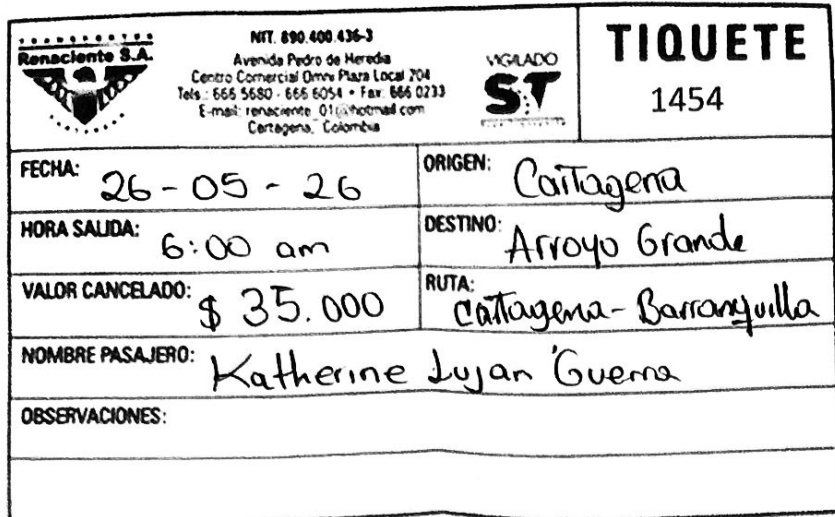 TRANSPORTES
Renaciente S.A.
NIT. 890.400.436-3
Avenida Pedro de Heredia
Centro Comercial Omni Plaza Local 204
Tels.: 666 5680 - 666 6054 • Fax: 666 0233
E-mail: renaciente_01@hotmail.com
Cartagena, Colombia
VIGILADO
ST
TIQUETE
1454
FECHA: 26-05-26
ORIGEN: Cartagena
HORA SALIDA: 6:00 am
DESTINO: Arroyo Grande
VALOR CANCELADO: $ 35.000
RUTA: Cartagena-Barranquilla
NOMBRE PASAJERO: Katherine Lujan Guerra
OBSERVACIONES: